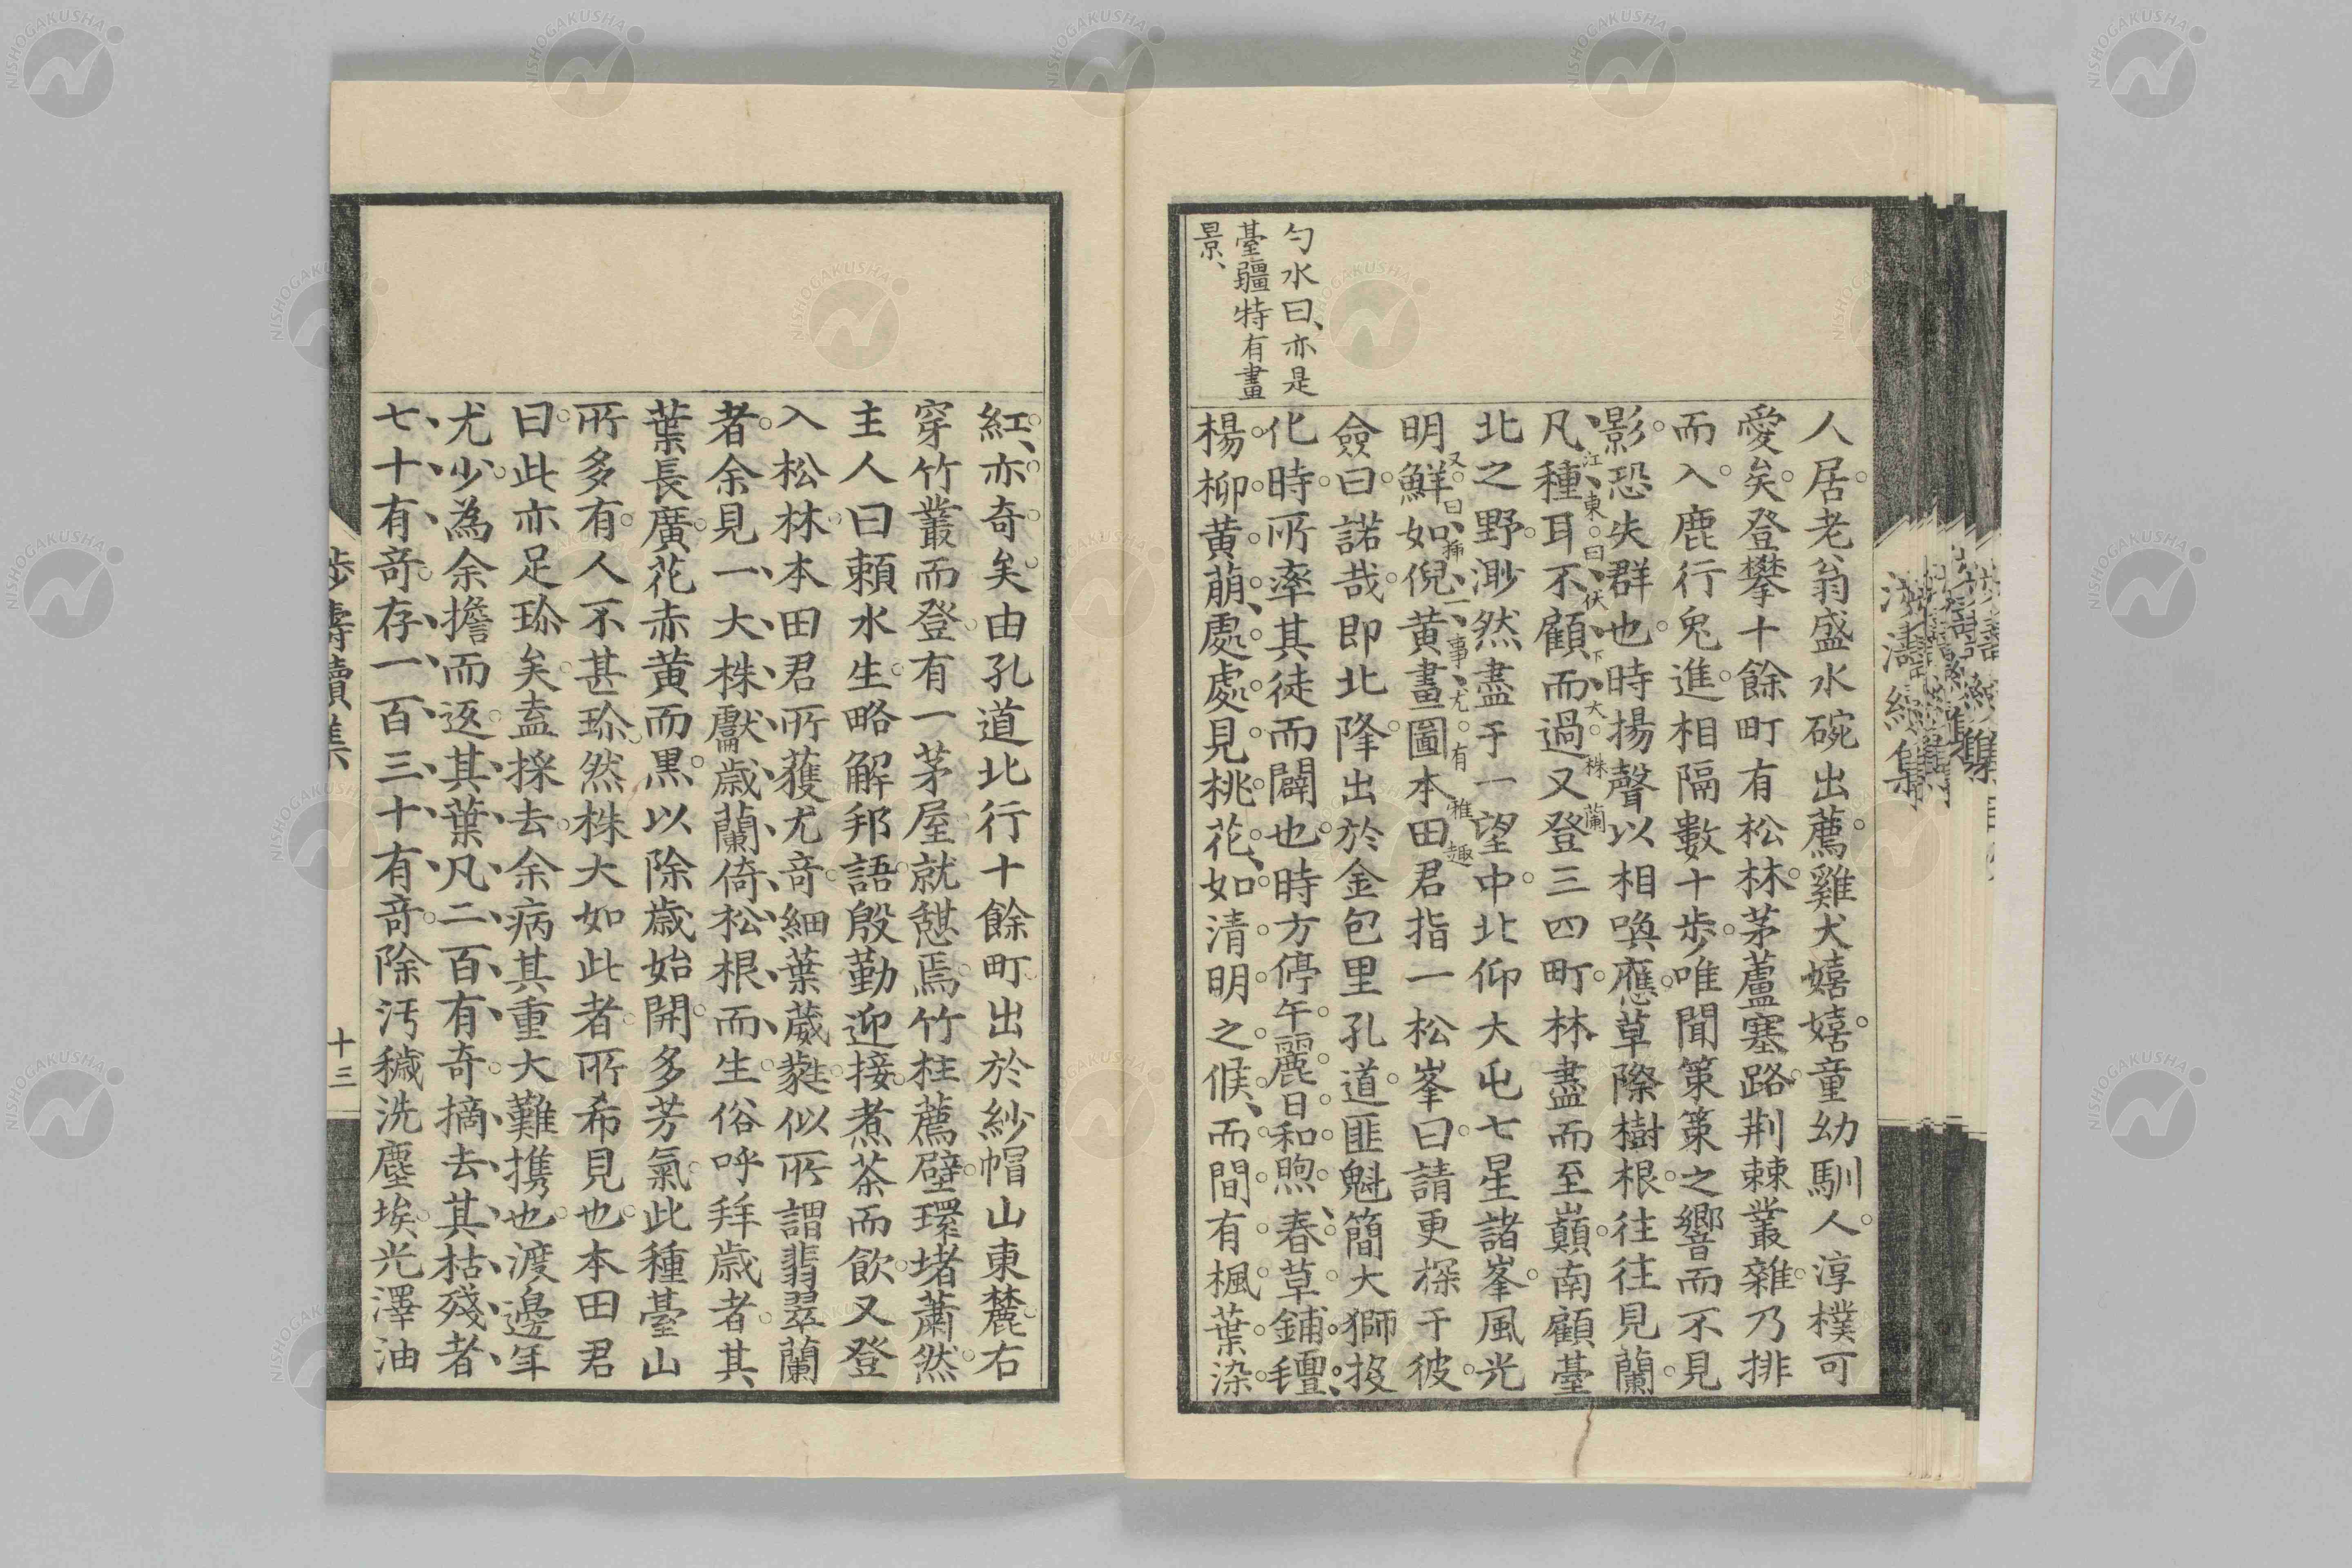 勻水曰、亦是
臺疆特有畫
景、
人居。老翁盛水碗出薦。雞犬嬉嬉。童幼馴人。淳樸可
愛矣。登攀十餘町有松林。茅蘆塞路。荆棘叢雜。乃排
而入。鹿行兔進。相隔數十步。唯聞策策之響而不見
影。恐失群也。時揚聲以相喚應。草際樹根。往往見蘭。
凡種耳不顧而過又登三四町。林盡而至巔。南顧臺
江東曰、伏下大株蘭
北之野。渺然盡于一望中。北仰大屯七星諸峯。風光
明鮮。如倪黃畫圖。本田君指一松峯曰。請更探于彼。
又曰、插一事、尤有雅趣
僉曰。諾哉。即北降。出於金包里孔道。匪魁簡大獅投
化時。所率其徒而闢也。時方停午。麗日和煦。春草鋪氊。
楊柳黃萠、處處見桃花、如清明之候、而間有楓葉染
紅、亦奇矣。由孔道北行十餘町。出於紗帽山東麓。右
穿竹叢而登。有一茅屋。就憇焉。竹柱薦壁。環堵蕭然。
主人曰賴水生。略解邦語。殷勤迎接。煮茶而飲。又登
入松林。本田君所獲尤奇。細葉葳蕤。似所謂翡翠蘭
者。余見一大株獻歲蘭倚松根而生。俗呼拜歲者。其
葉長廣。花赤黃而黑。以除歲始開。多芳氣。此種臺山
所多有。人不甚珎。然株大如此者。所希見也。本田君
曰。此亦足珎矣。盍採去。余病其重大難携也。渡邊年
尤少。為余擔而返。其葉凡二百有奇。摘去其枯殘者
七十有奇。存一百三十有奇。除汚穢洗塵埃。光澤油
十三